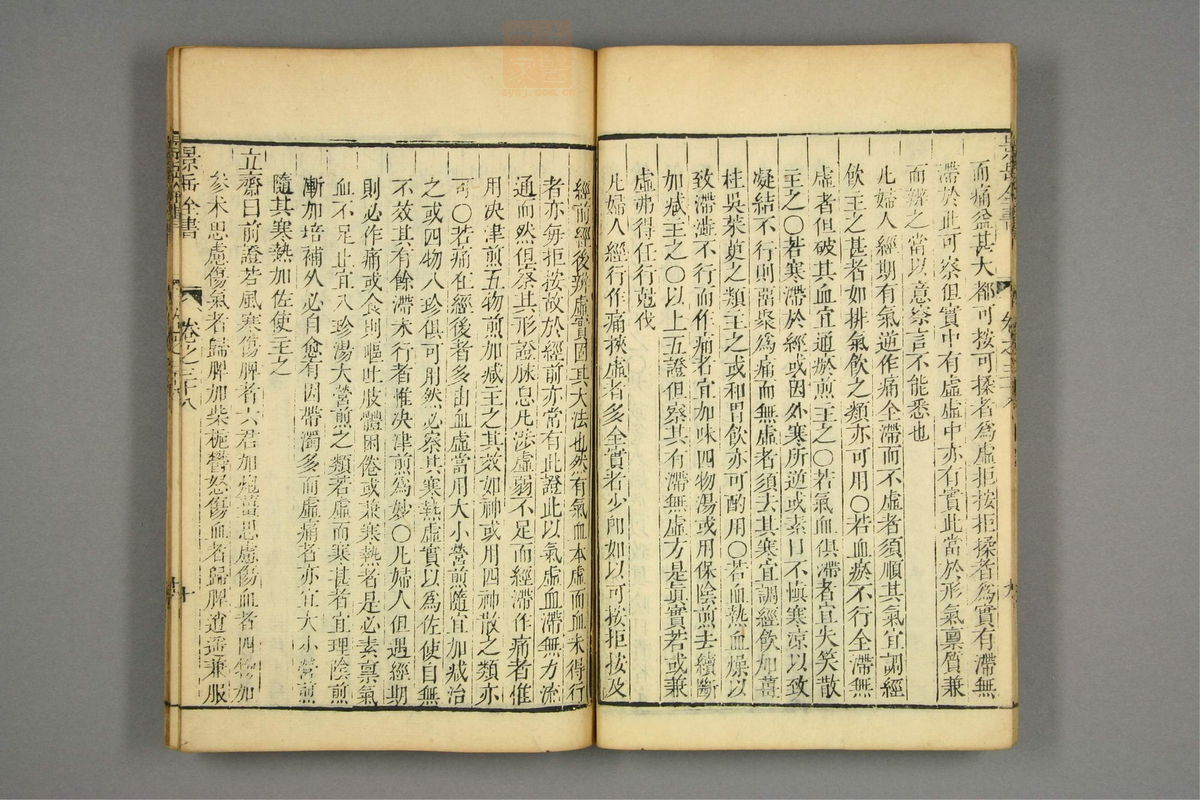 而痛益甚大都可按可揉者為虛拒按拒揉者為實有滯無
滯於此可察但實中有虛虛中亦有實此當於形氣稟質兼
而辨之當以意察言不能悉也
凡婦人經期有氣逆作痛全滯而不虛者須順其氣宜調經
飲主之甚者如排氣飲之類亦可用○若血瘀不行全滯無
虛者但破其血宜通瘀煎主之○若氣血俱滯者宜失笑散
主之○若寒滯於經或因外寒所逆或素日不慎寒涼以致
凝結不行則畱聚為痛而無虛者須去其寒宜調經飲加薑
桂吳茱萸之類主之或和胃飲亦可酌用○若血熱血燥以
致滯濇不行而作痛者宜加味四物湯或用保陰煎去續斷
加減主之○以上五證但察其有滯無虛方是真實若或兼
虛弗得任行尅伐
凡婦人經行作痛挾虛者多全實者少即如以可按拒按及
經前經後辨虛實固其大法也然有氣血本虛而血未得行
者亦每拒按故於經前亦常有此證此以氣虛血滯無力流
通而然但察其形證脉息凡涉虛弱不足而經滯作痛者惟
用決津煎五物煎加減主之其效如神或用四神散之類亦
可○若痛在經後者多由血虛當用大小營煎隨宜加減治
之或四物八珍俱可用然必察其寒熱虛實以為佐使自無
不效其有餘滯未行者惟決津煎為妙○凡婦人但遇經期
則必作痛或食則嘔吐肢體困倦或兼寒熱者是必素稟氣
血不足止宜八珍湯大營煎之類若虛而寒甚者宜理陰煎
漸加培補久必自愈有因帶濁多而虛痛者亦宜大小營煎
隨其寒熱加佐使主之
立齋曰前證若風寒傷脾者六君加炮薑思慮傷血者四物加
參朮思慮傷氣者歸脾加柴梔鬱怒傷血者歸脾逍遙兼服
景岳全書
卷之三十八
十